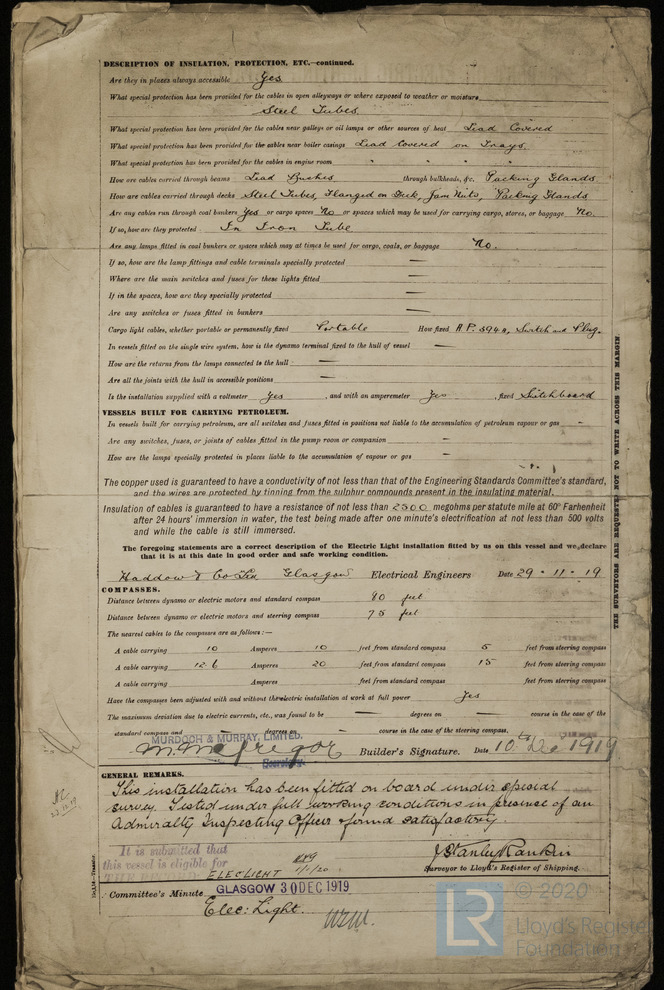 DESCRIPTION OF INSULATION, PROTECTION, ETC.—continued.
Are they in places always accessible Yes
What special protection has been provided for the cables in open alleyways or where exposed to weather or moisture
Steel Tubes.
What special protection has been provided for the cables near galleys or oil lamps or other sources of heat Lead Covered
What special protection has been provided for the cables near boiler casings Lead Covered on Trays.
What special protection has been provided for the cables in engine room " " " "
How are cables carried through beams Lead Bushes through bulkheads, &c. Packing Glands.
How are cables carried through decks Steel Tubes, Flanged on Deck, Jam Nuts, Packing Glands
Are any cables run through coal bunkers Yes or cargo spaces No or spaces which may be used for carrying cargo, stores, or baggage No.
If so, how are they protected In Iron Tube
Are any lamps fitted in coal bunkers or spaces which may at times be used for cargo, coals, or baggage No.
If so, how are the lamp fittings and cable terminals specially protected —
Where are the main switches and fuses for these lights fitted —
If in the spaces, how are they specially protected —
Are any switches or fuses fitted in bunkers —
Cargo light cables, whether portable or permanently fixed Portable How fixed A.P. 3940, Switch and Plug.
In vessels fitted on the single wire system, how is the dynamo terminal fixed to the hull of vessel —
How are the returns from the lamps connected to the hull —
Are all the joints with the hull in accessible positions —
Is the installation supplied with a voltmeter Yes , and with an amperemeter Yes , fixed Switchboard
VESSELS BUILT FOR CARRYING PETROLEUM.
In vessels built for carrying petroleum, are all switches and fuses fitted in positions not liable to the accumulation of petroleum vapour or gas —
Are any switches, fuses, or joints of cables fitted in the pump room or companion —
How are the lamps specially protected in places liable to the accumulation of vapour or gas —
The copper used is guaranteed to have a conductivity of not less than that of the Engineering Standards Committee's standard,
and the wires are protected by tinning from the sulphur compounds present in the insulating material.
Insulation of cables is guaranteed to have a resistance of not less than 2500 megohms per statute mile at 60° Farhenheit
after 24 hours' immersion in water, the test being made after one minute's electrification at not less than 500 volts
and while the cable is still immersed.
The foregoing statements are a correct description of the Electric Light installation fitted by us on this vessel and we declare
that it is at this date in good order and safe working condition.
Haddow & Co Ltd Glasgow Electrical Engineers Date 29 · 11 · 19
COMPASSES.
Distance between dynamo or electric motors and standard compass 80 feet
Distance between dynamo or electric motors and steering compass 75 feet
The nearest cables to the compasses are as follows:—
A cable carrying 10 Amperes 10 feet from standard compass 5 feet from steering compass
A cable carrying 12.6 Amperes 20 feet from standard compass 15 feet from steering compass
A cable carrying Amperes feet from standard compass feet from steering compass
Have the compasses been adjusted with and without the electric installation at work at full power Yes
The maximum deviation due to electric currents, etc., was found to be — degrees on — course in the case of the
standard compass and — degrees on — course in the case of the steering compass.
MURDOCH & MURRAY, LIMITED.
M. McGregor Builder's Signature. Date 10th Dec 1919
Secretary.
THE SURVEYORS ARE REQUESTED NOT TO WRITE ACROSS THIS MARGIN
GENERAL REMARKS.
This installation has been fitted on board under special
survey. Tested under full working conditions in presence of an
Admiralty Inspecting Officer & found satisfactory.
It is submitted that
this vessel is eligible for
THE RECORD
ELEC LIGHT
1/1/20
J Stanley Rankin
Surveyor to Lloyd's Register of Shipping.
Committee's Minute GLASGOW 30 DEC 1919
Elec: Light.
LR
© 2020
Lloyd's Register
Foundation